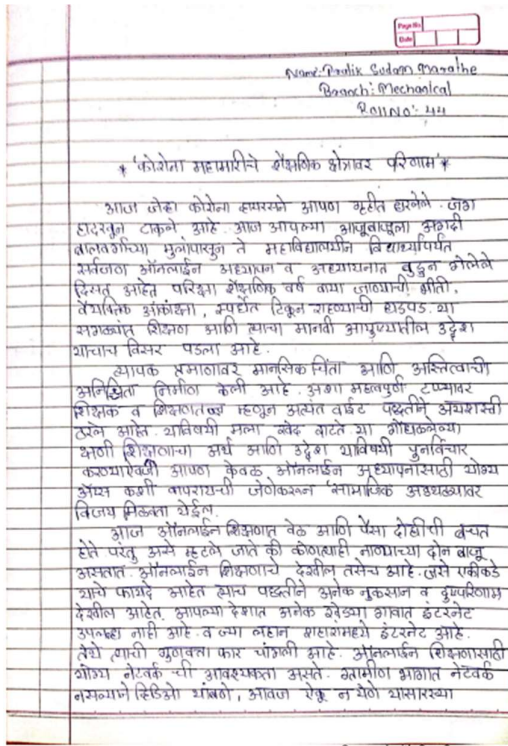 Page No
Date
Name: Pratik Sudam Marathe
Branch: Mechanical
Roll No: 44
* 'कोरोना महामारीचे शैक्षणिक क्षेत्रावर परिणाम' *
आज जेव्हा कोरोना व्हायरसने आपण गृहीत धरलेले जग
हादरवून टाकले आहे. आज आपल्या आजूबाजूला अगदी
बालवर्गाच्या मुलांपासुन ते महाविद्यालयीन विद्यार्थ्यांपर्यंत
सर्वजण ऑनलाईन अध्यापन व अध्ययनात बुडुन गेलेले
दिसत आहेत परिक्षा शैक्षणिक वर्ष वाया जाण्याची भीती,
वैयक्तिक आकांक्षा, स्पर्धेत टिकून राहण्याची धडपड. या
सगळ्यांत शिक्षण आणि त्याचा मानवी आयुष्यातील उद्देश
याचाच विसर पडला आहे.
व्यापक प्रमाणावर मानसिक चिंता आणि अस्तित्वाची
अनिश्चिता निर्माण केली आहे. अशा महत्वपुर्ण टप्प्यावर
शिक्षक व शिक्षणतज्ञ म्हणून अत्यंत वाईट पद्धतीने अयशस्वी
ठरले आहेत. याविषयी मला खेद वाटतो या गोंधळलेल्या
क्षणी शिक्षणाचा अर्थ आणि उद्देश याविषयी पुनर्विचार
करण्याऐवजी आपण केवळ ऑनलाईन अध्यापनासाठी योग्य
ॲप्स कशी वापरायची जेणेकरून 'सामाजिक अडथळ्यावर
विजय मिळवता येईल.
आज ऑनलाईन शिक्षणात वेळ आणि पैसा दोहोंची बचत
होते परंतु असे म्हटले जाते की कोणत्याही नाण्याच्या दोन बाजू
असतात. ऑनलाईन शिक्षणाचे देखील तसेच आहे. जसे एकीकडे
याचे फायदे आहेत त्याच पद्धतीने अनेक नुकसान व दुष्परिणाम
देखील आहेत. आपल्या देशात अनेक खेड्या गावात इंटरनेट
उपलब्ध नाही आहे. व ज्या लहान शहरामध्ये इंटरनेट आहे.
तेथे त्याची गुणवत्ता फार चांगली आहे. ऑनलाईन शिक्षणासाठी
योग्य नेटवर्क ची आवश्यकता असते. ग्रामीण भागात नेटवर्क
नसल्याने व्हिडिओ थांबणे, आवाज ऐकू न येणे यासारख्या